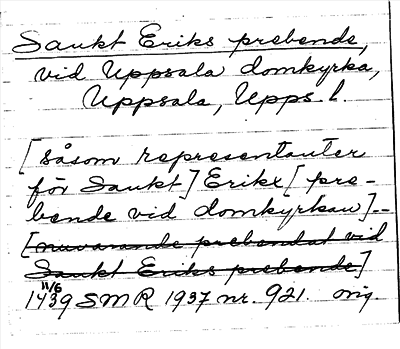 Sankt Eriks prebende,
vid Uppsala domkyrka,
Uppsala, Upps. l.
[såsom representanter
för Sankt] Erikx [pre-
bende vid domkyrkan] --
[nuvarande prebendat vid
Sankt Eriks prebende]
11/6
1439 SMR 1937 nr. 921. orig.